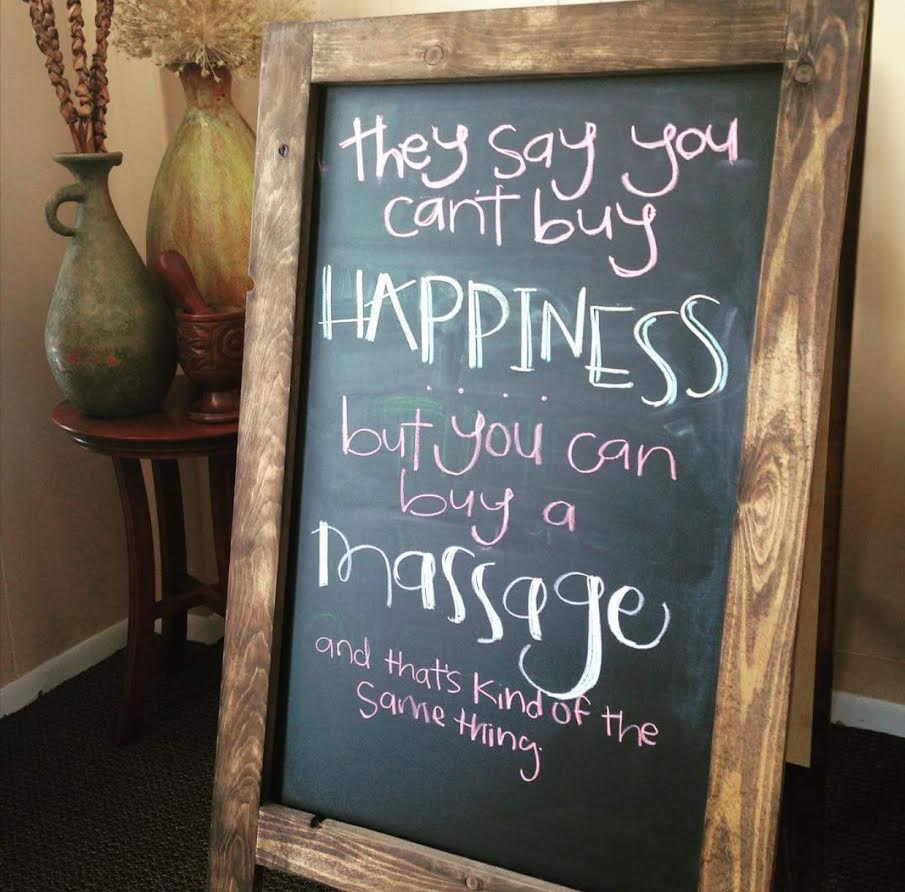 they say you
can't buy
HAPPINESS
....
but you can
buy a
massage
and that's kind of the
same thing.